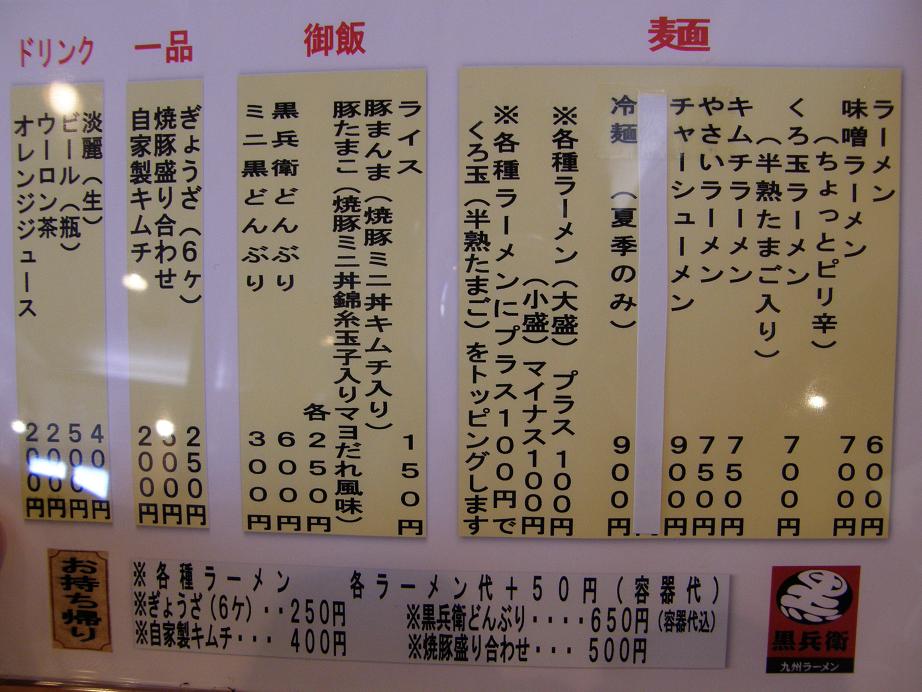 麺
ラーメン 600円
味噌ラーメン 700円
(ちょっとピリ辛)
くろ玉ラーメン 700円
(半熟たまご入り)
キムチラーメン 750円
やさいラーメン 750円
チャーシューメン 900円
冷麺 (夏季のみ) 900円
※各種ラーメン(大盛)プラス100円
(小盛)マイナス100円
※各種ラーメンにプラス100円で
くろ玉(半熟たまご)をトッピングします
御飯
ライス 150円
豚まんま(焼豚ミニ丼キムチ入り)
豚たまこ(焼豚ミニ丼錦糸玉子入りマヨだれ風味)
各250円
黒兵衛どんぶり 600円
ミニ黒どんぶり 300円
一品
ぎょうざ(6ケ) 250円
焼豚盛り合わせ 500円
自家製キムチ 200円
ドリンク
淡麗(生) 400円
ビール(瓶) 500円
ウーロン茶 200円
オレンジジュース 200円
お持ち帰り
※各種ラーメン 各ラーメン代+50円(容器代)
※ぎょうざ(6ケ)‥250円
※黒兵衛どんぶり‥‥650円(容器代込)
※自家製キムチ‥・400円
※焼豚盛り合わせ‥・500円
黒兵衛
九州ラーメン